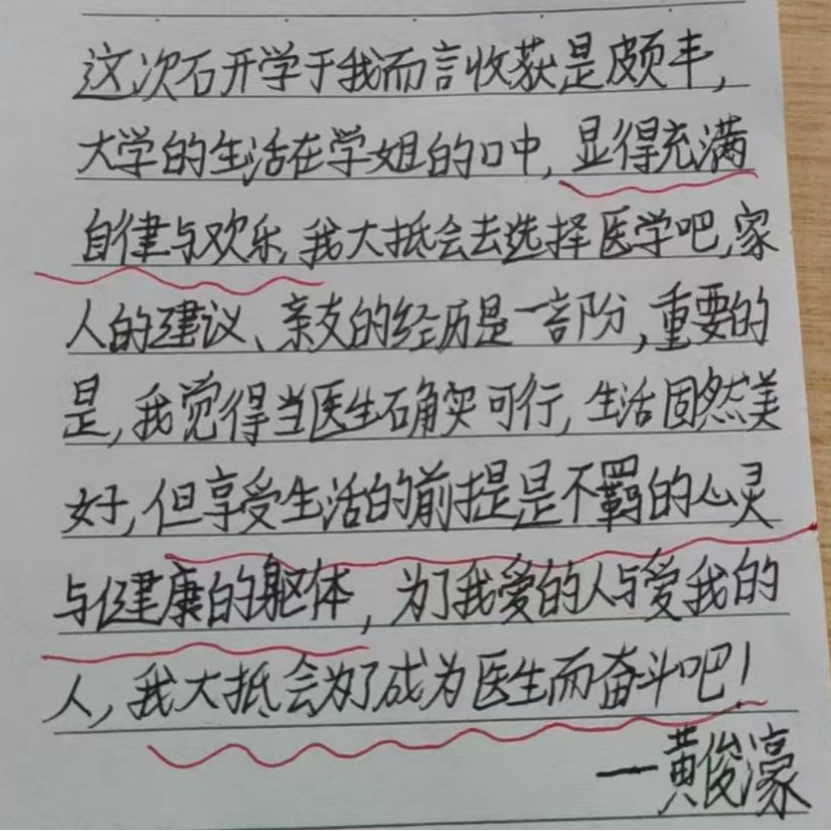 这次石开学于我而言收获是颇丰,
大学的生活在学姐的口中,显得充满
自律与欢乐,我大抵会去选择医学吧,家
人的建议、亲友的经历是一部分,重要的
是,我觉得当医生确实可行,生活固然美
好,但享受生活的前提是不羁的心灵
与健康的躯体,为了我爱的人与爱我的
人,我大抵会为了成为医生而奋斗吧!
—黄俊濠